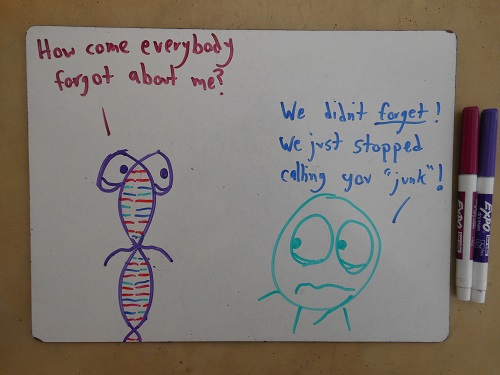 How come everybody
forgot about me?
We didn't forget!
We just stopped
calling you "junk"!
EXPO
EXPO